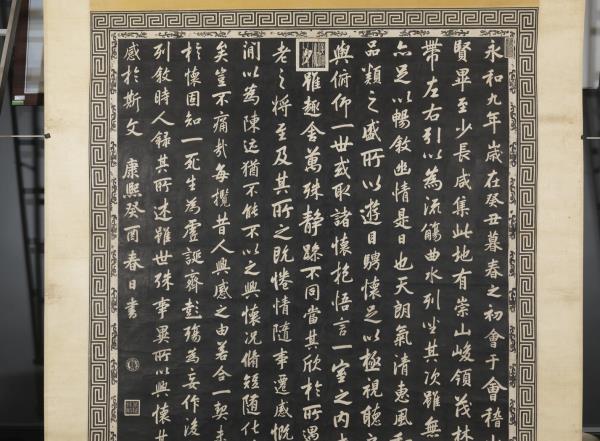 永和九年歲在癸丑暮春之初會于會稽山
賢畢至少長咸集此地有崇山峻領茂林
帶左右引以為流觴曲水列坐其次雖無
亦足以暢敘幽情是日也天朗氣清惠風
品類之盛所以遊目騁懷足以極視聽之
與俯仰一世或取諸懷抱悟言一室之內
雖趣舍萬殊靜躁不同當其欣於所遇
老之將至及其所之既惓情隨事遷感慨
間以為陳迹猶不能不以之興懷況脩短隨化
矣豈不痛哉每攬昔人興感之由若合一契未
於懷固知一死生為虛誕齊彭殤為妄作後
列敘時人錄其所述雖世殊事異所以興懷其
感於斯文 康熙癸酉春日書